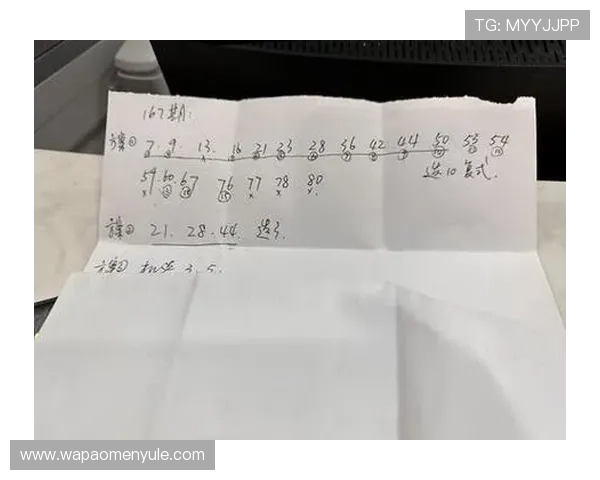 TG: MYYJJPP
167期:
方案① 7. 9. 13. 16 21 23 28 36 42 44 50 53 54
59 60 67 76 77 78 80 选10复式
方案② 21. 28. 44. 选3.
方案③ 机选 3. 5.
www.wapaomenyule.com